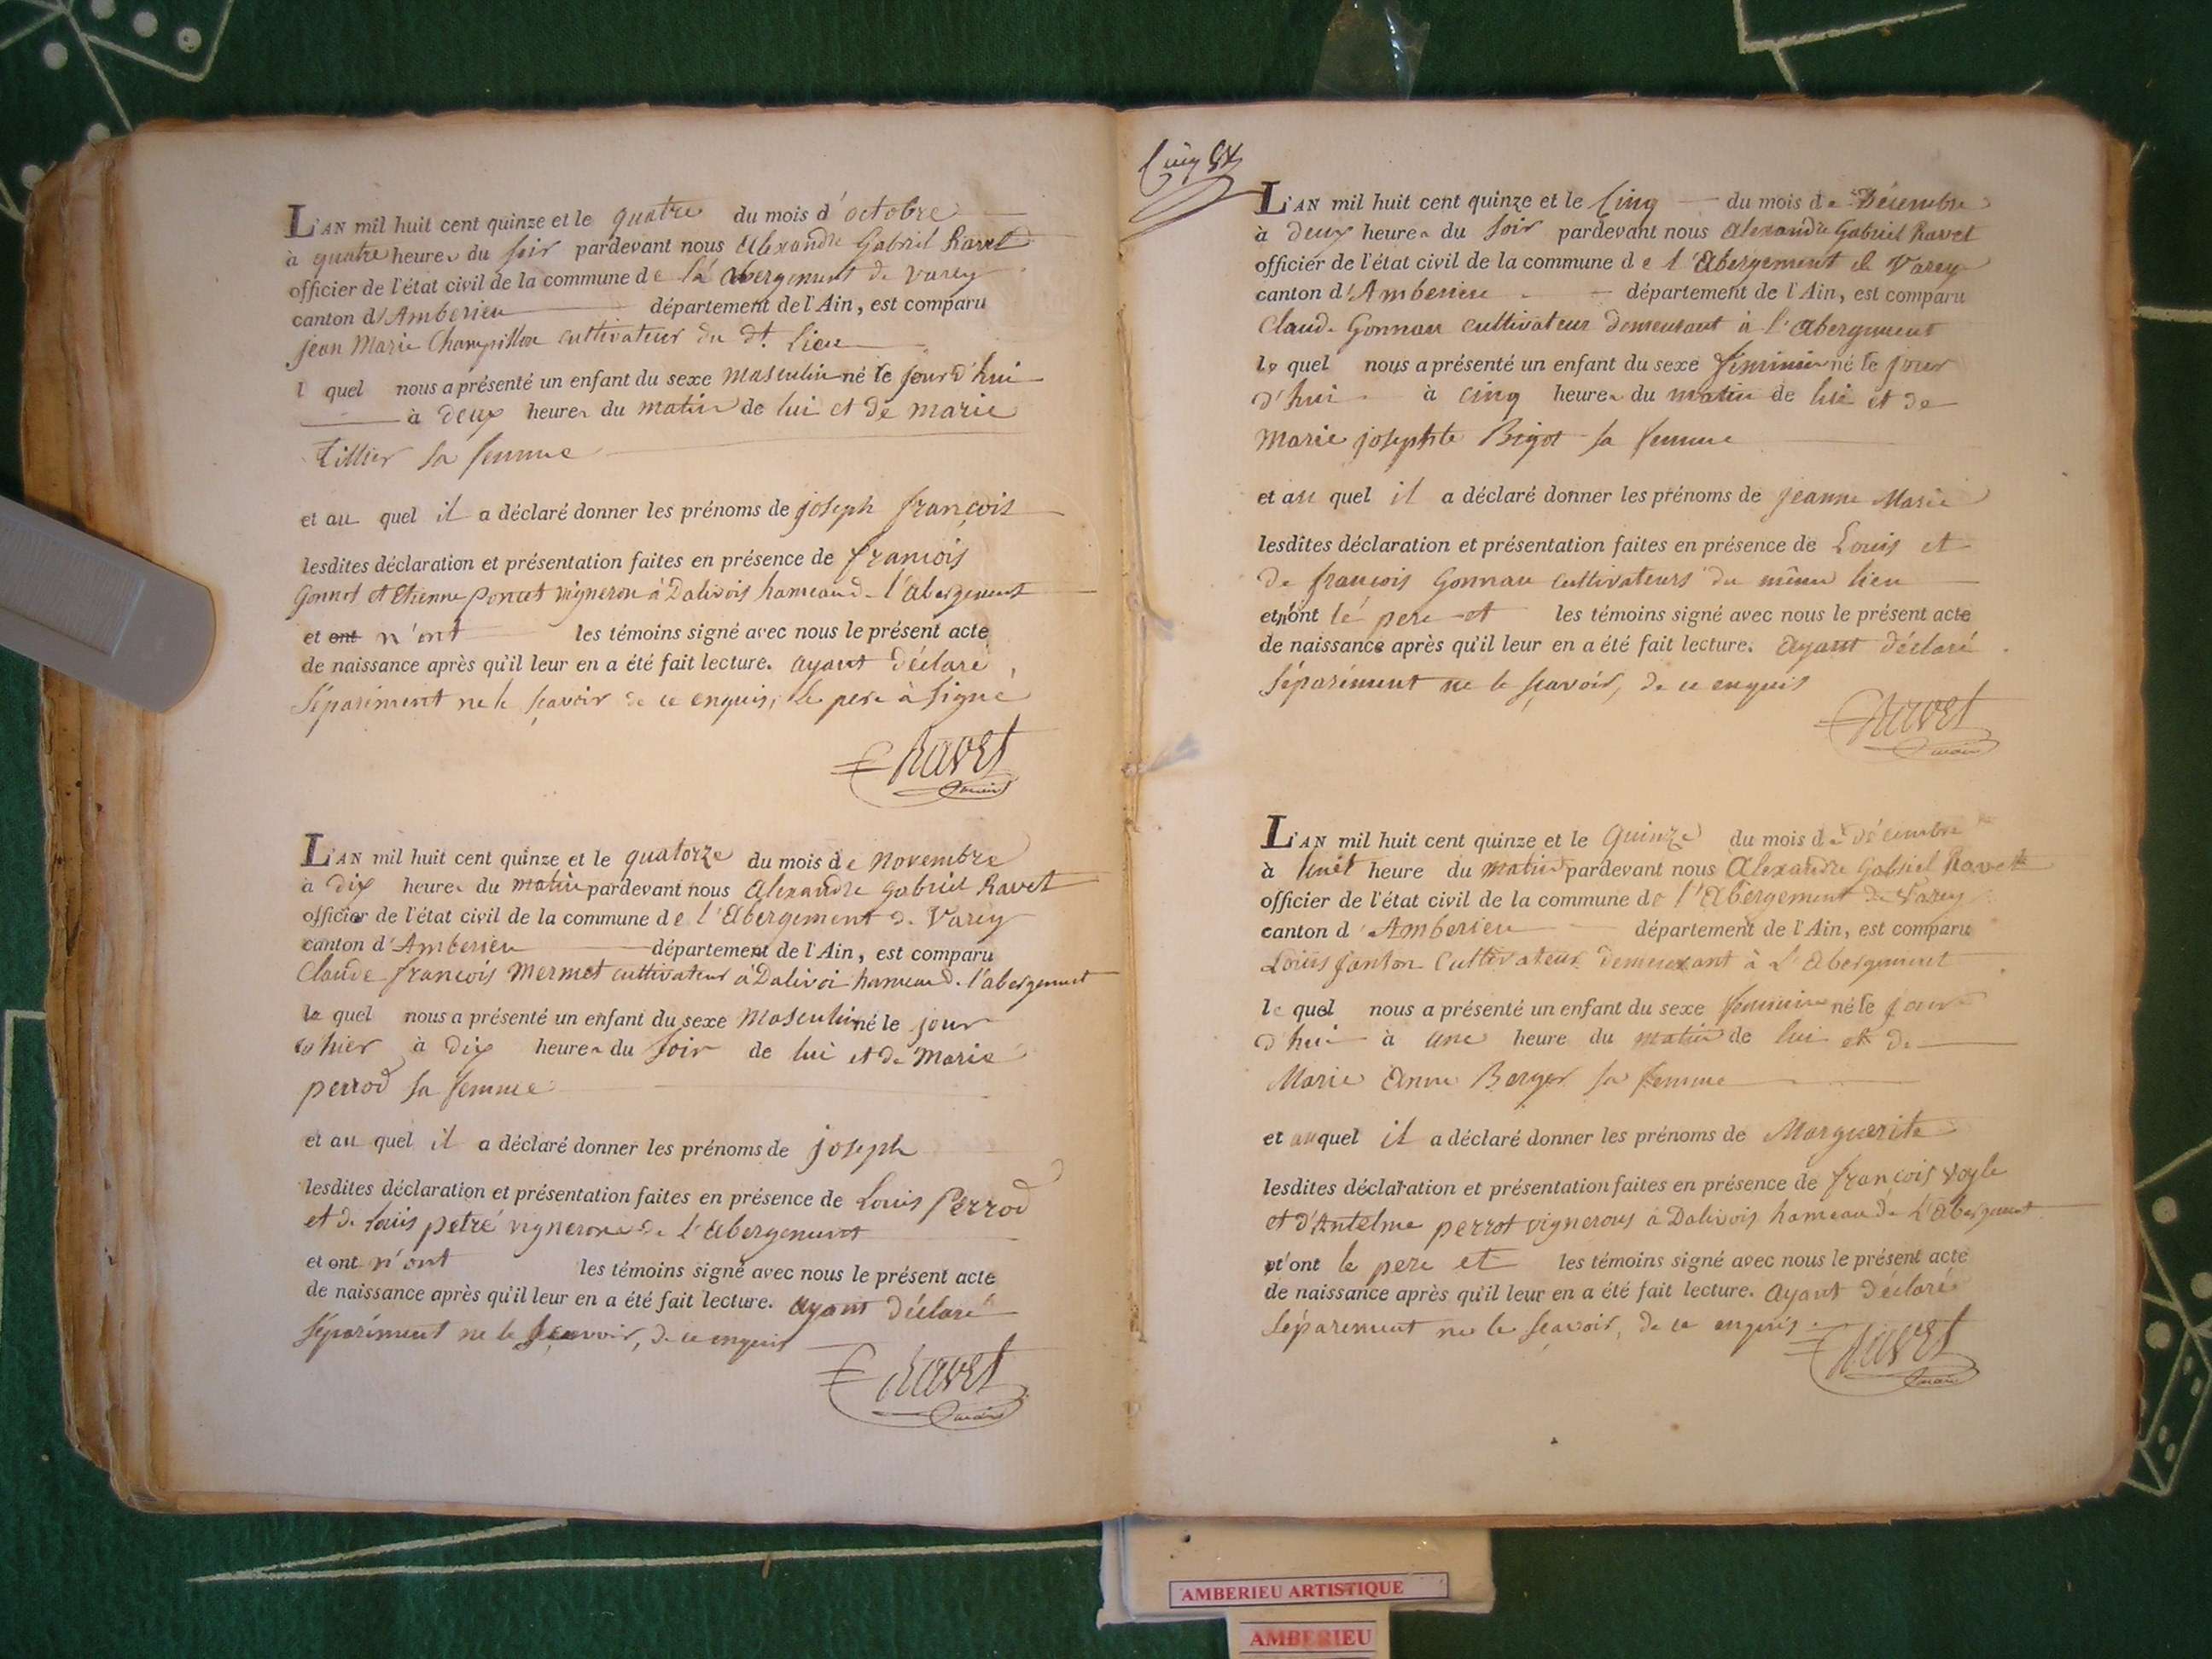 L'AN mil huit cent quinze et le quatre du mois d'octobre
à quatre heures du soir pardevant nous Alexandre Gabriel Ravet
officier de l'état civil de la commune de la abergement de varey
canton d'Amberieu département de l'Ain, est comparu
jean Marie Champillon cultivateur du dt. Lieu
l quel nous a présenté un enfant du sexe masculin né le jour d'hui
à deux heures du matin de lui et de marie
tillier sa femme
et au quel il a déclaré donner les prénoms de joseph françois
lesdites déclaration et présentation faites en présence de francois
Gonnet et Etienne poncet vigneron à Dalivois hameau d. l'abergement
et ont n'ont les témoins signé avec nous le présent acte
de naissance après qu'il leur en a été fait lecture. ayant déclaré
séparément ne le sçavoir de ce enquis, le pere à signé
Ravet
maire
L'AN mil huit cent quinze et le quatorze du mois de novembre
à dix heures du matin pardevant nous Alexandre Gabriel Ravet
officier de l'état civil de la commune de l'Abergement de Varey
canton d'Amberieu département de l'Ain, est comparu
Claude françois Mermet cultivateur à Dalivoi hameau d. l'abergement
le quel nous a présenté un enfant du sexe masculin né le jour
hier à dix heures du soir de lui et de Marie
perrod sa femme
et au quel il a déclaré donner les prénoms de joseph
lesdites déclaration et présentation faites en présence de Louis Perrod
et de louis petré vignerons de l'abergement
et ont n'ont les témoins signé avec nous le présent acte
de naissance après qu'il leur en a été fait lecture. ayant déclaré
séparément ne le sçavoir, de ce enquis
Ravet
maire
L'AN mil huit cent quinze et le Cinq du mois de Décembre
à deux heures du soir pardevant nous Alexandre Gabriel Ravet
officier de l'état civil de la commune de l'Abergement de Varey
canton d'Amberieu département de l'Ain, est comparu
Claude Gonnau cultivateur demeurant à l'abergement
le quel nous a présenté un enfant du sexe féminin né le jour
d'hui à cinq heures du matin de lui et de
marie josephte Bigot sa femme
et au quel il a déclaré donner les prénoms de jeanne Marie
lesdites déclaration et présentation faites en présence de Louis et
de françois Gonnau cultivateurs du même lieu
et n'ont le pere et les témoins signé avec nous le présent acte
de naissance après qu'il leur en a été fait lecture. ayant déclaré
séparément ne le sçavoir, de ce enquis
Ravet
maire
L'AN mil huit cent quinze et le Quinze du mois de décembre
à heure du matin pardevant nous Alexandre Gabriel Ravet
officier de l'état civil de la commune de l'Abergement de Varey
canton d'Amberieu département de l'Ain, est comparu
Louis fanton Cultivateur demeurant à L'Abergement
le quel nous a présenté un enfant du sexe féminin né le jour
d'hui à une heure du matin de lui et de
Marie Anne Berger sa femme
et auquel il a déclaré donner les prénoms de Marguerite
lesdites déclaration et présentation faites en présence de françois vogle
et d'Antelme perrot vignerons à Dalivois hameau de L'Abergement
n'ont le pere et les témoins signé avec nous le présent acte
de naissance après qu'il leur en a été fait lecture. ayant déclaré
séparement ne le sçavoir, de ce enquis.
Ravet
maire
AMBERIEU ARTISTIQUE
AMBERIEU